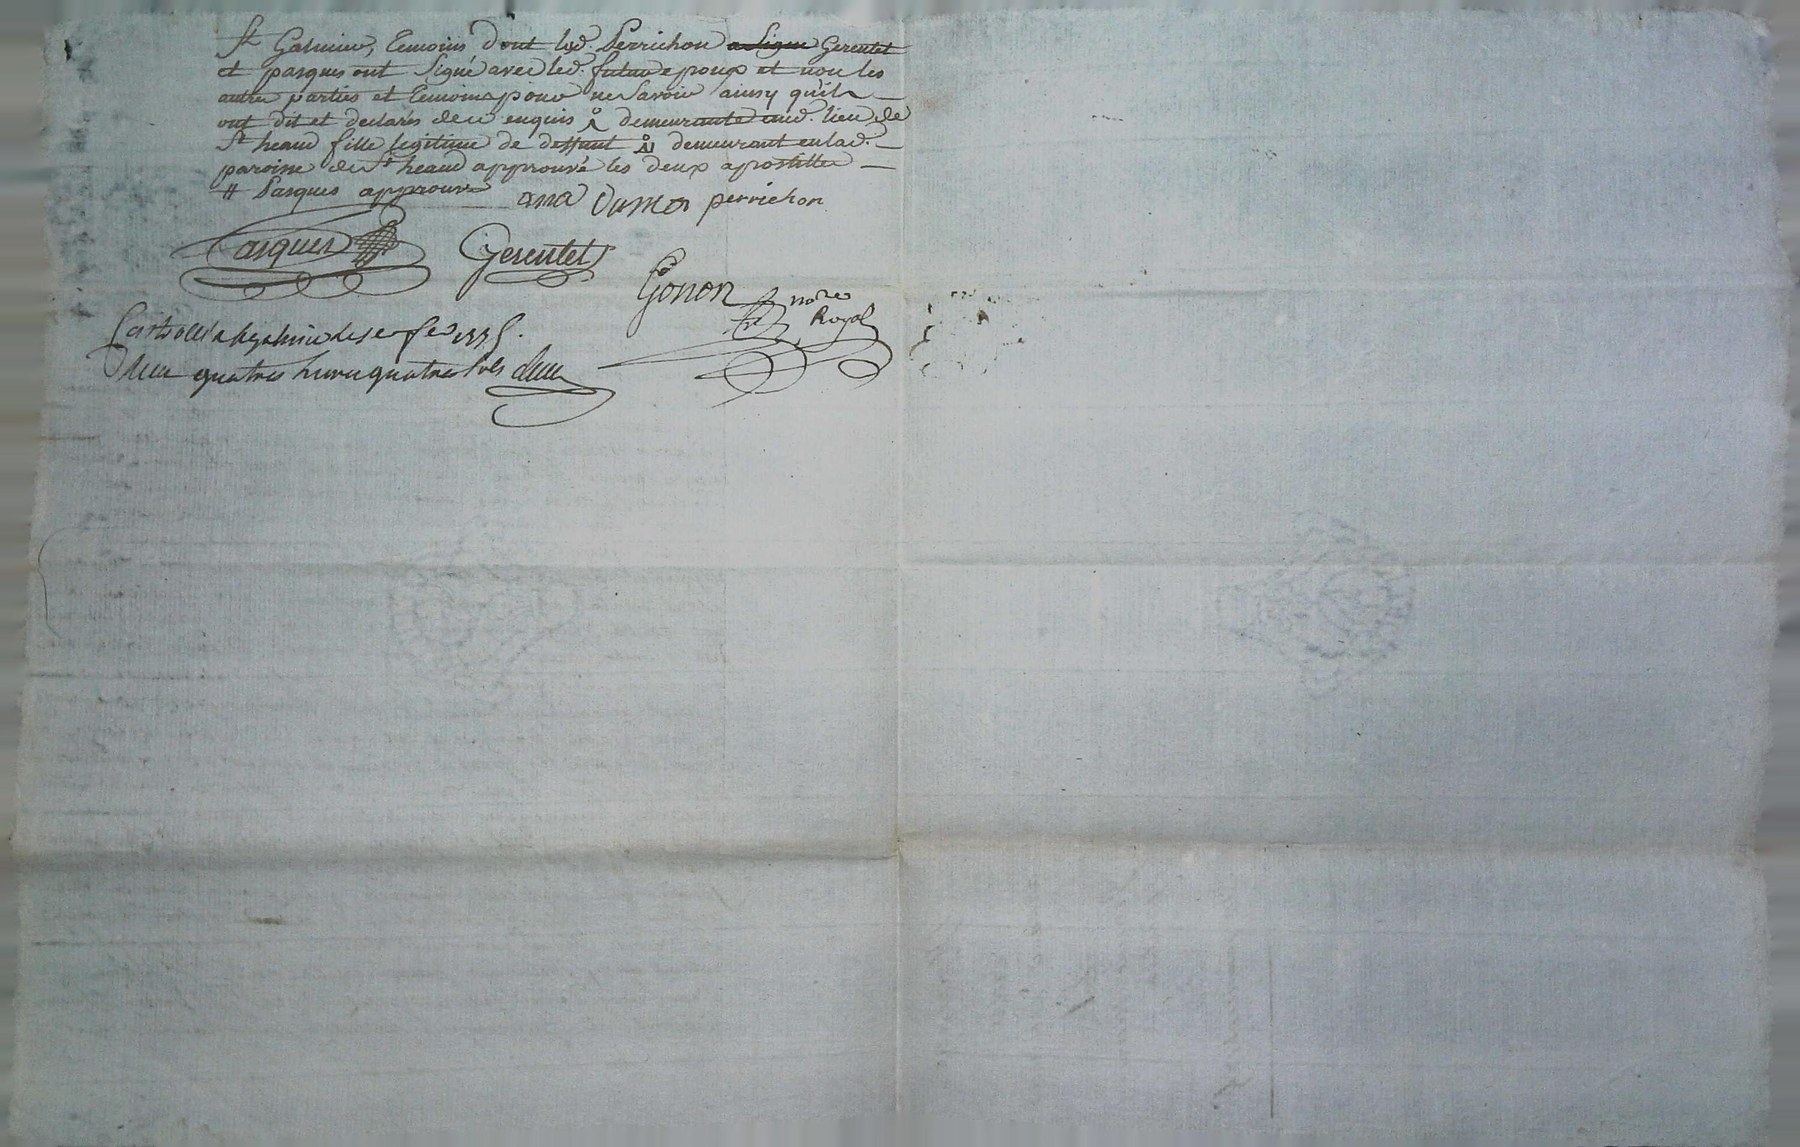 St Galmier, temoins dont led. Perrichon a signé Gerentet
et pasques ont Signé avec led. futur epoux et non les
autres parties et temoins pour ne Savoir ainsy qu'ils
ont dit et declarés de ce enquis demeurante aud. lieu de
St heand fille legitime de deffunt demeurant en lad.
paroisse de St heand approuvé les deux apostilles
# Pasques approuvé
ana Dumon perrichon
Pasques Gerentet
Gonon
nore
Royal
quatre quatre